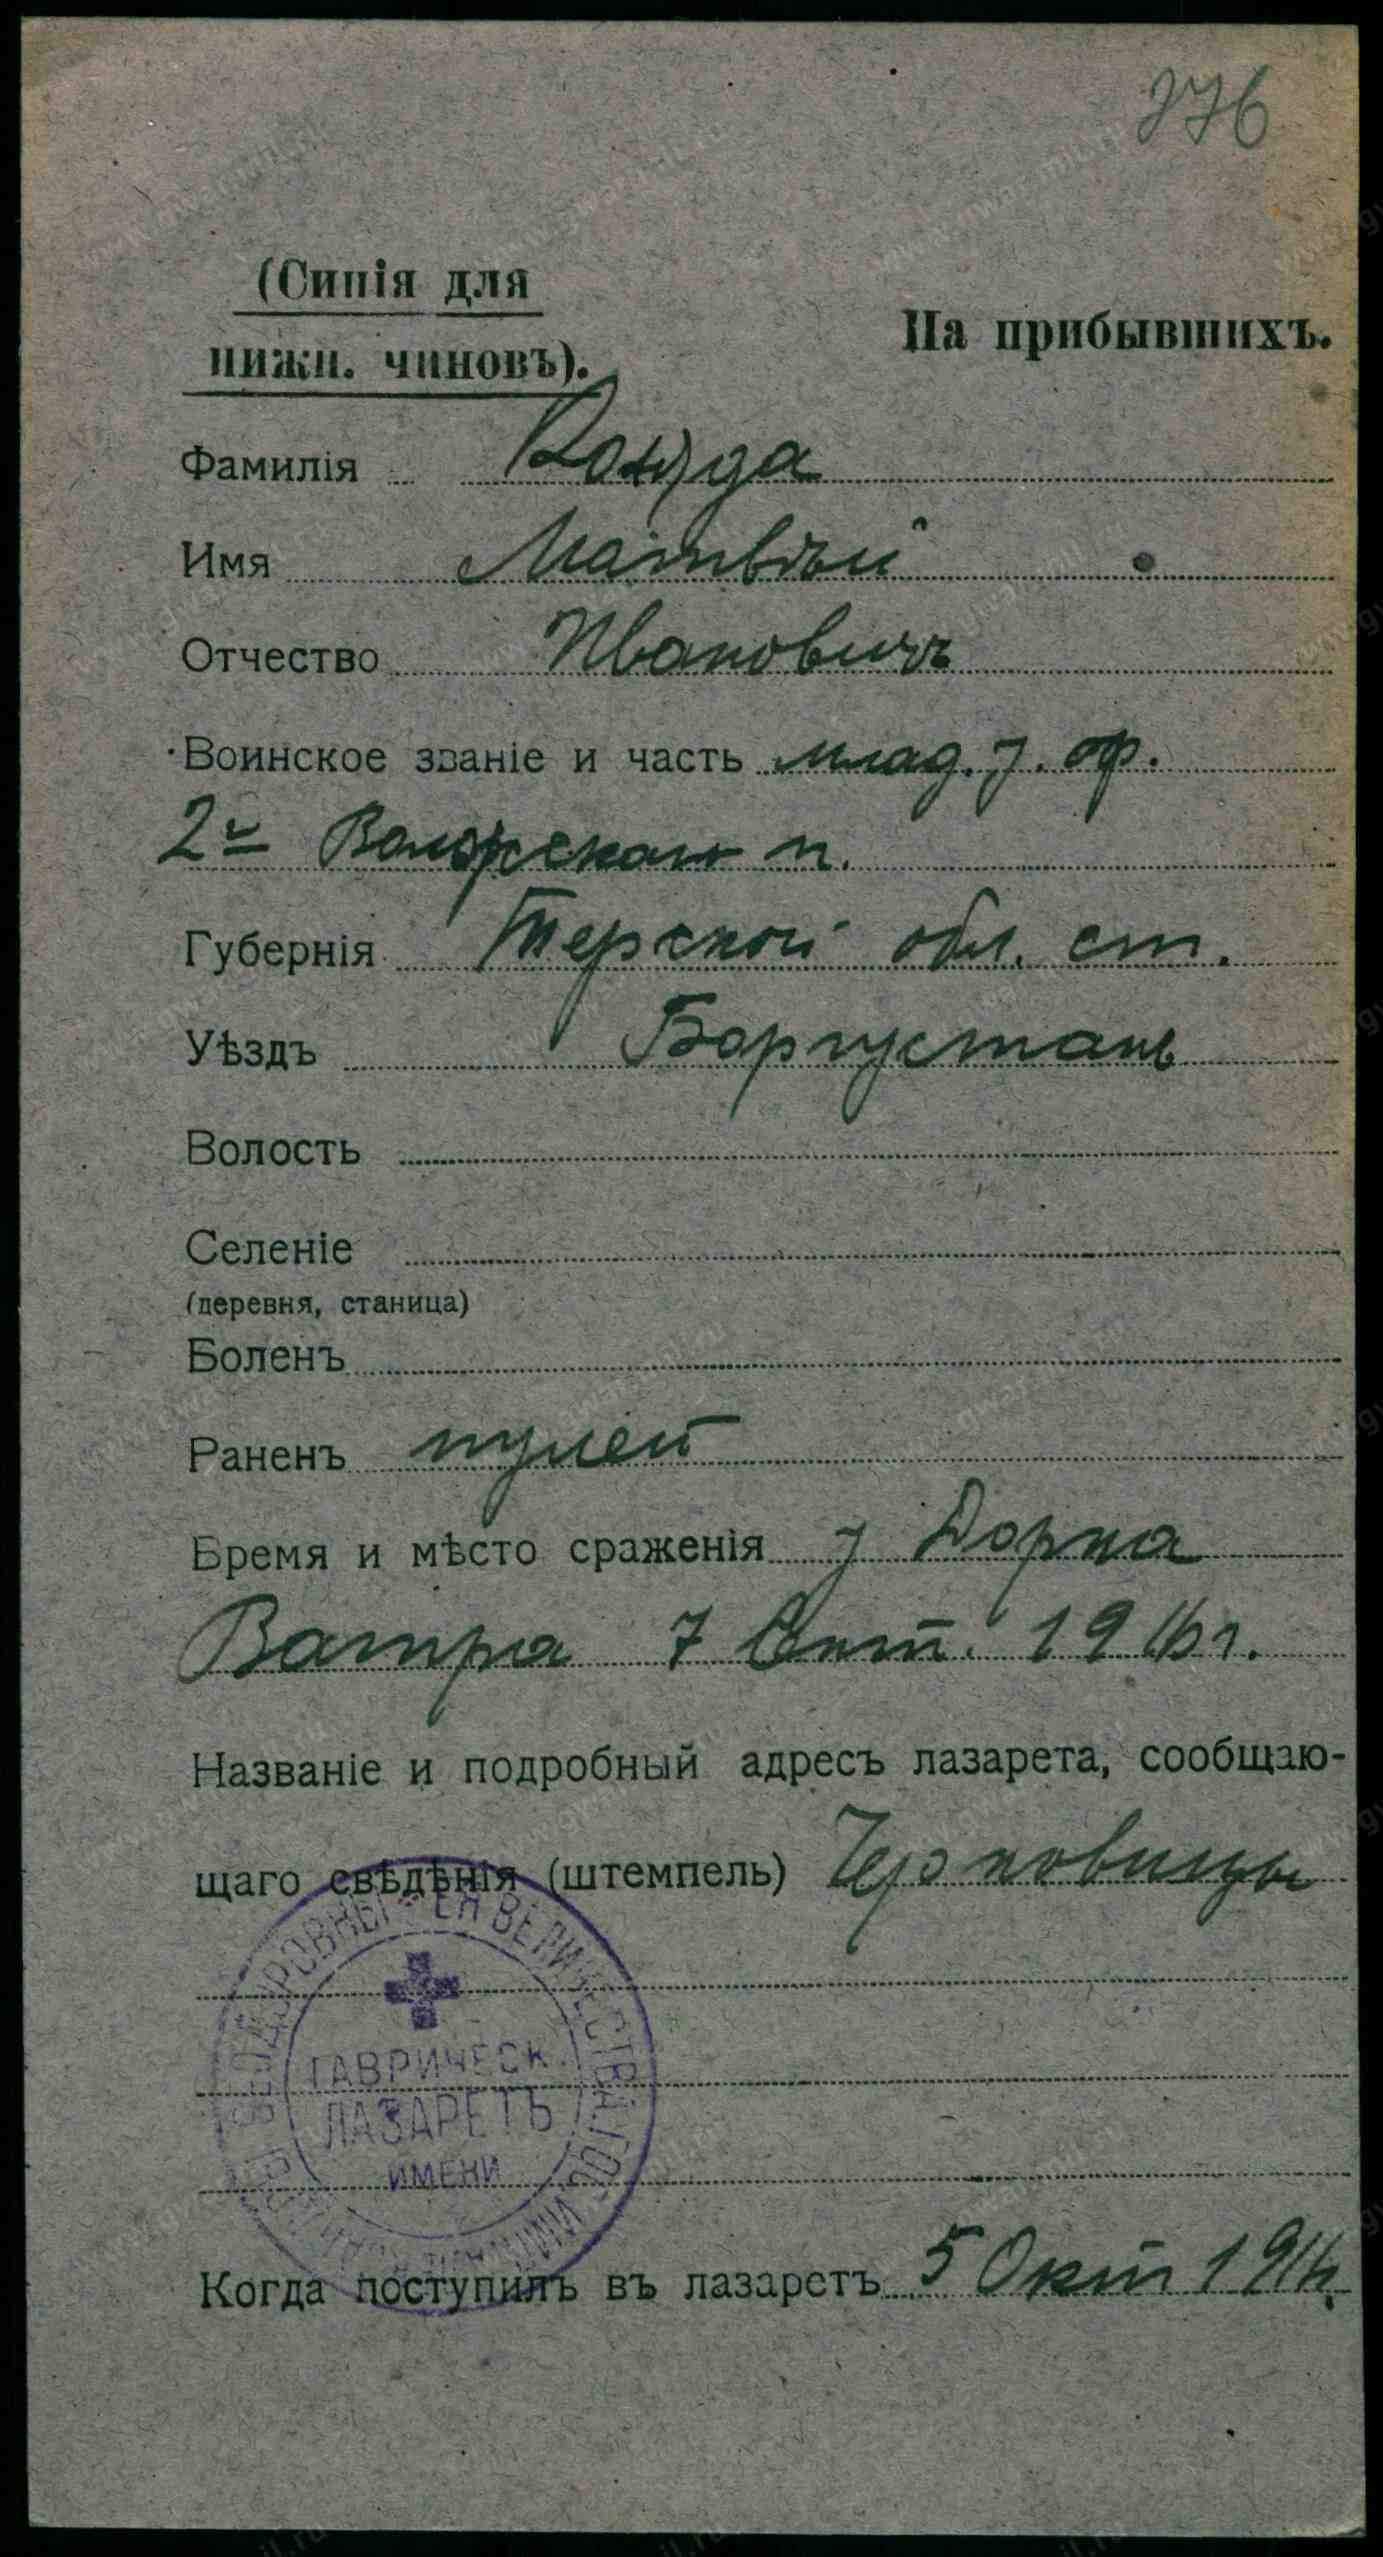 376
(Синія для
нижн. чиновъ).
На прибывшихъ.
Фамилія
Имя Матвѣй
Отчество Ивановичъ
Воинское званіе и часть млад. у. оф.
2й Волжскаго п.
Губернія Терской обл. ст.
Уѣздъ Боргустань
Волость
Селеніе
(деревня, станица)
Боленъ
Раненъ пулей
Время и мѣсто сраженія у Дорна
Ватра 7 Окт. 1916 г.
Названіе и подробный адресъ лазарета, сообщаю-
щаго свѣдѣнія (штемпель) Черновицы
ЕЯ ВЕЛИЧЕСТВА ГОС.
ТАВРИЧЕСК.
ЛАЗАРЕТЪ
ИМЕНИ
Когда поступилъ въ лазаретъ 5 Окт 1916